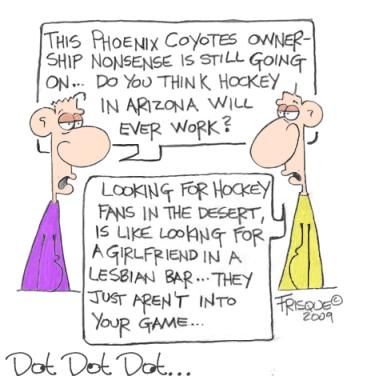 THIS PHOENIX COYOTES OWNER-
SHIP NONSENSE IS STILL GOING
ON... DO YOU THINK HOCKEY
IN ARIZONA WILL
EVER WORK?
LOOKING FOR HOCKEY
FANS IN THE DESERT,
IS LIKE LOOKING FOR
A GIRLFRIEND IN A
LESBIAN BAR... THEY
JUST AREN'T INTO
YOUR GAME...
FRISQUE©
2009
Dot Dot Dot...